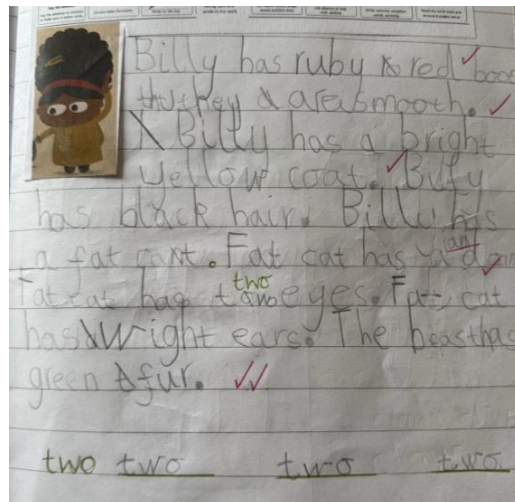 Billy has ruby red boo
they are smooth.
Billy has a bright
yellow coat. Billy
has black hair. Billy has
a fat cant. Fat cat has
Fat cat has two eyes. Fat cat
has Wright ears. The beast has
green fur.
two two two two